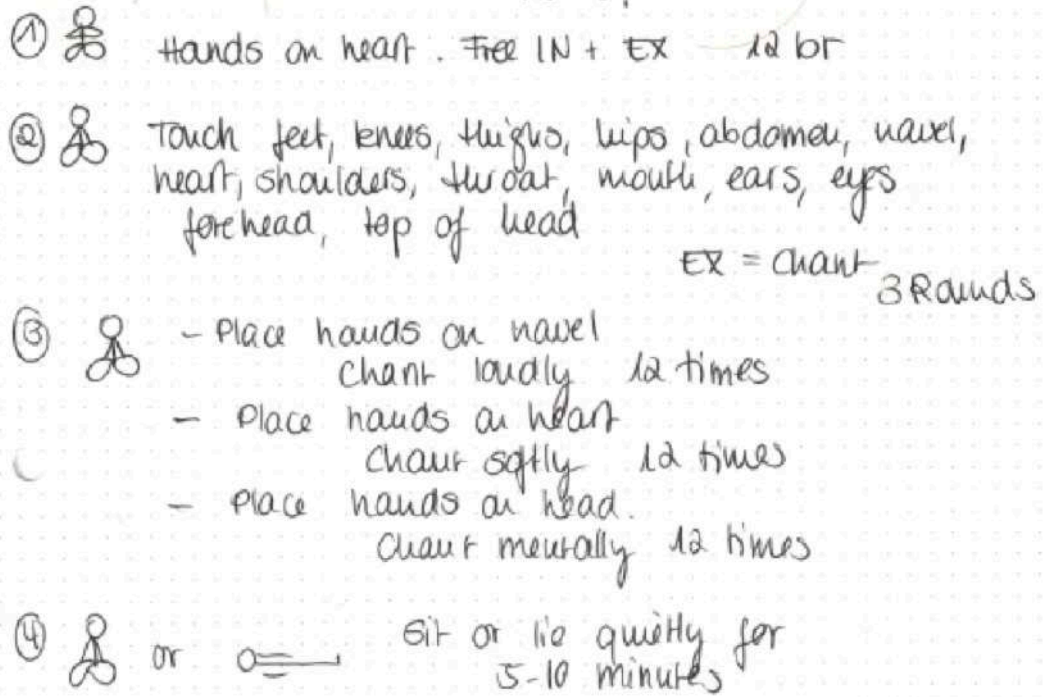 ① Hands on heart. Free IN + EX 12 br
② Touch feet, knees, thighs, hips, abdomen, navel,
heart, shoulders, throat, mouth, ears, eyes
forehead, top of head
EX = Chant
3 Rounds
③ - Place hands on navel
Chant loudly 12 times
- Place hands on heart
Chant softly 12 times
- Place hands on head.
Chant mentally 12 times
④ or Sit or lie quietly for
5-10 minutes